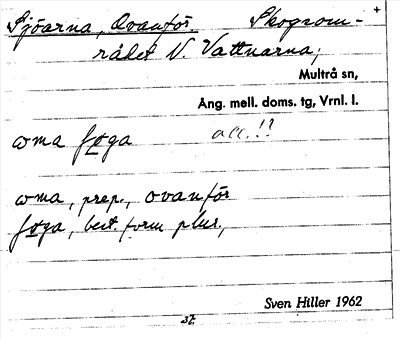 Sjöarna, Ovanför. Skogsom-
rådet N. Vattnarna,
Multrå sn,
Ång. mell. doms. tg, Vrnl. l.
oma føga acc.!!
oma, prep., ovanför
føga, best. form plur.,
Sven Hiller 1962